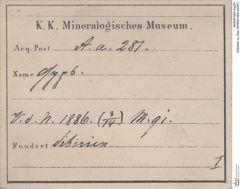 K. K. Mineralogisches Museum.
Acq. Post A. a. 281.
Name Gyps.
V. d. N. 1886. (3/IV) M. gi.
Fundort Sibirien
I